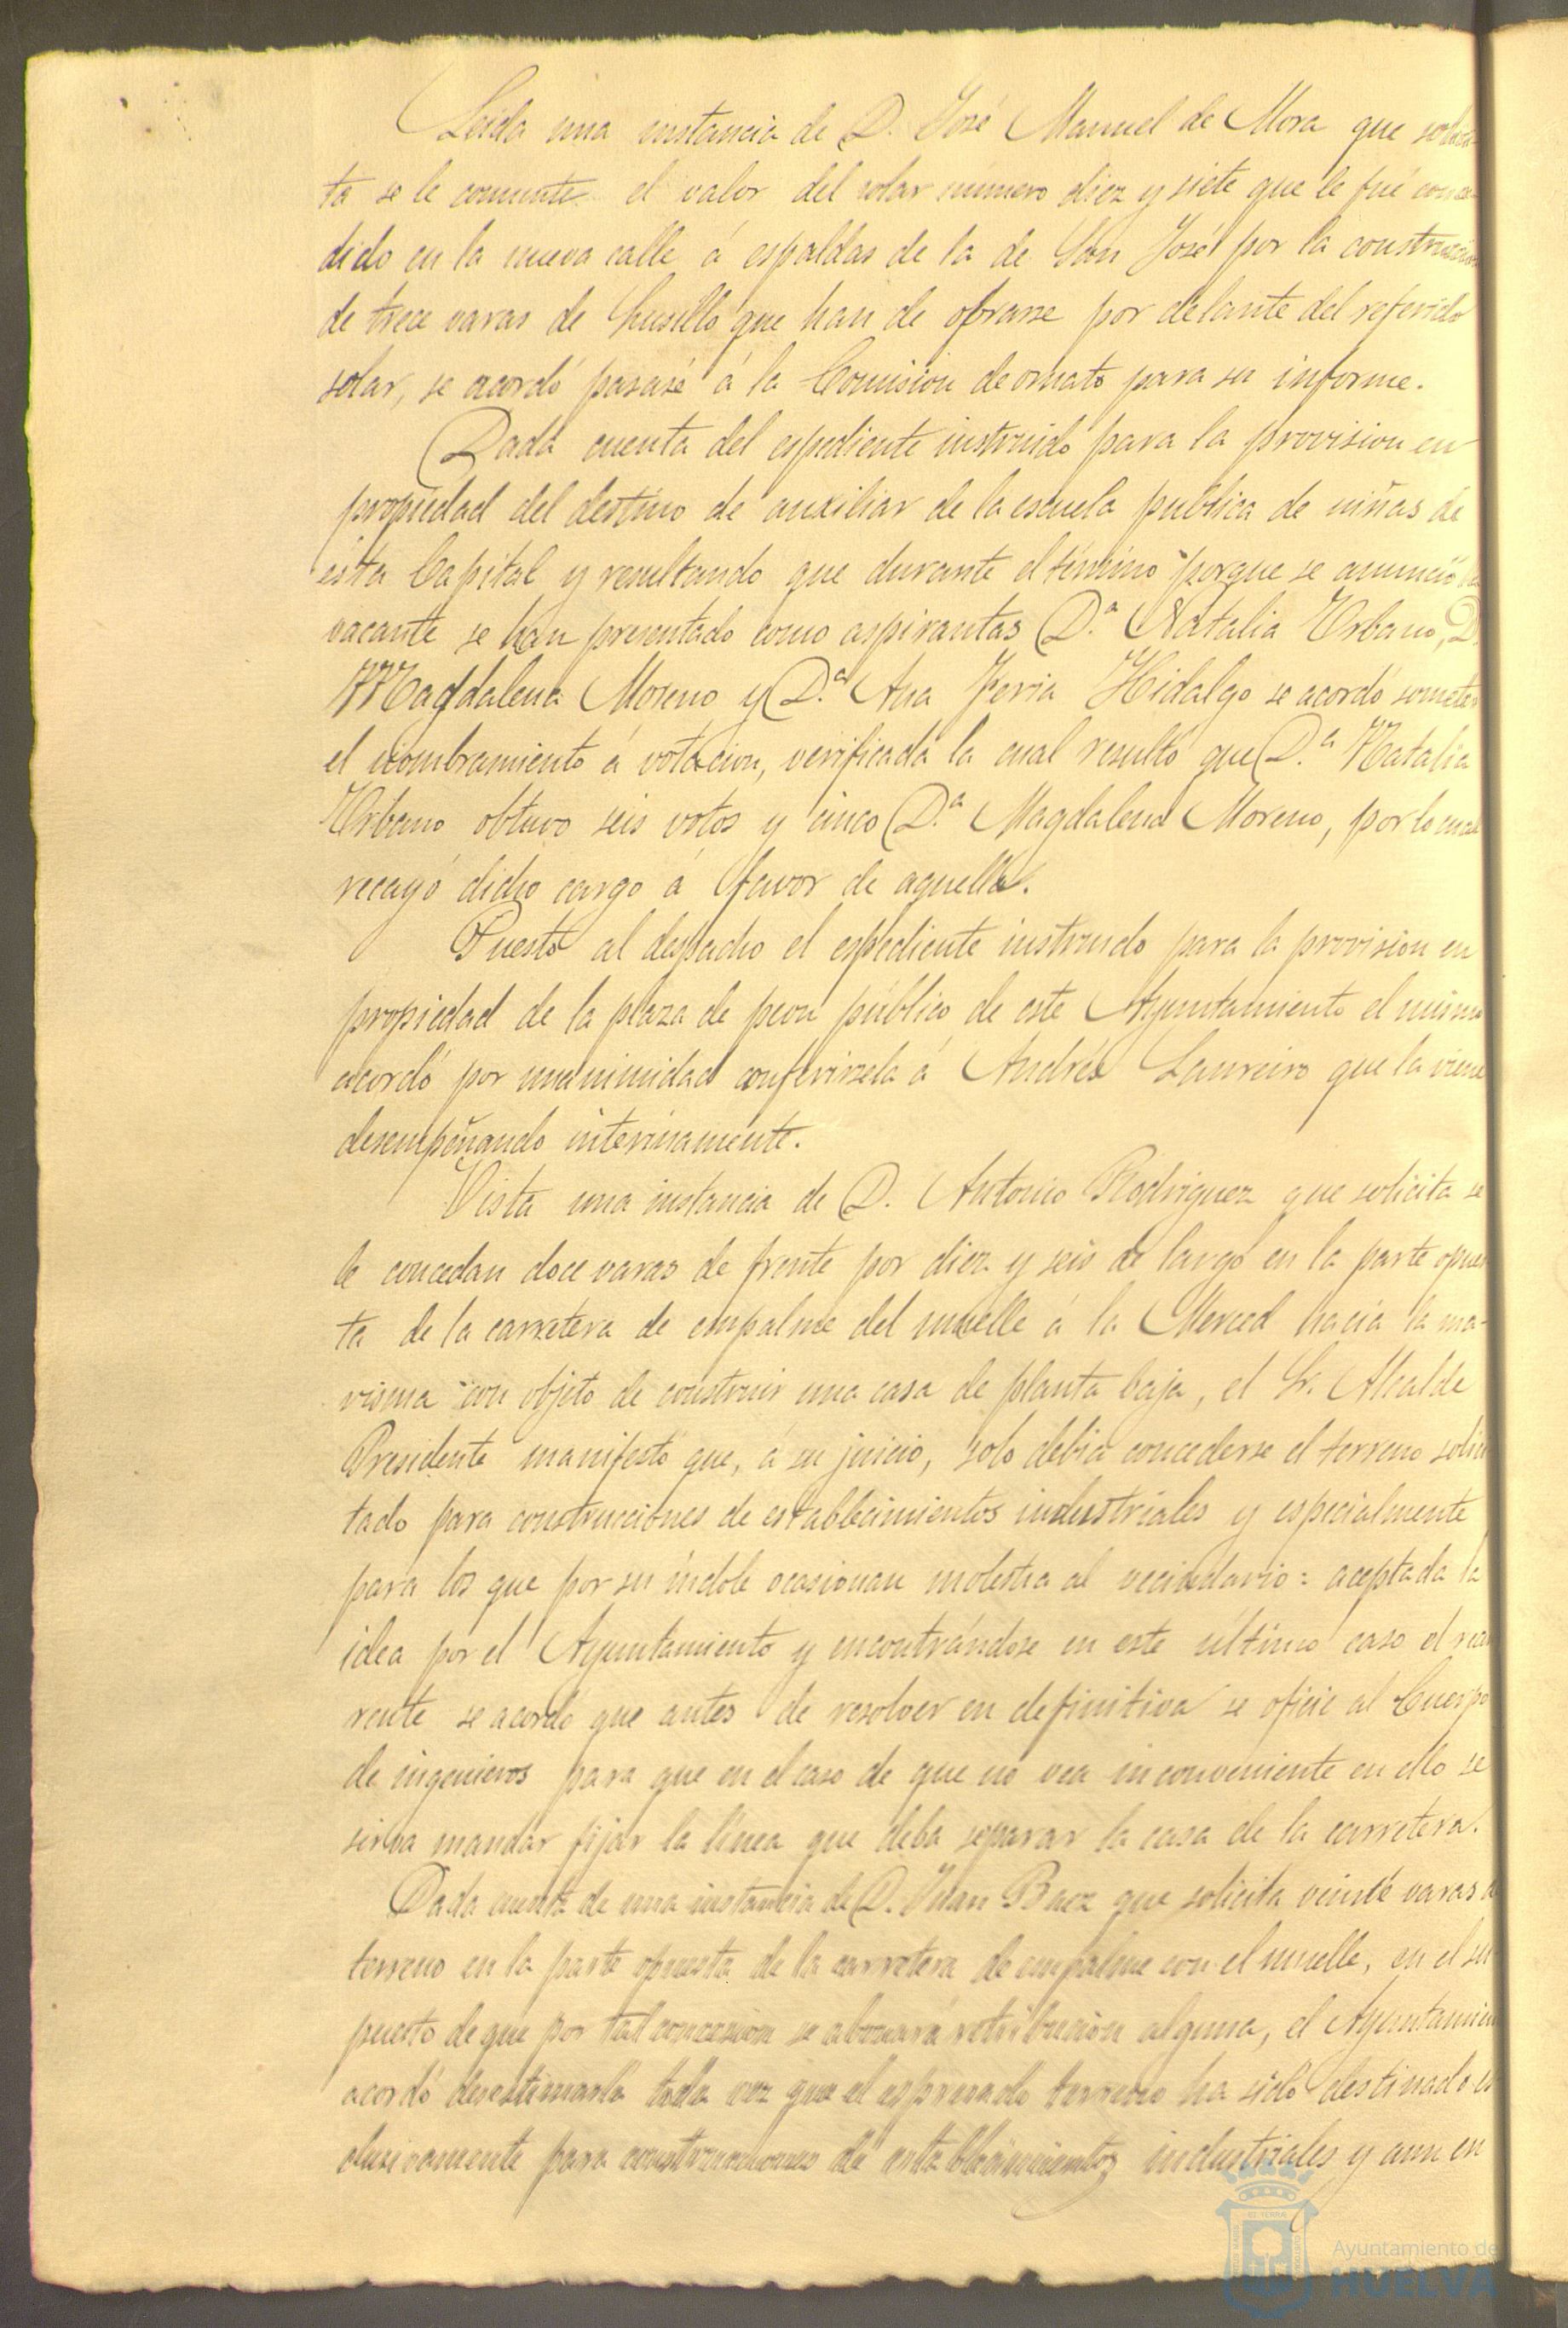 Leida una instancia de D. José Manuel de Mora que solici-
ta se le conmute el valor del solar número diez y siete que le fué conce-
dido en la nueva calle á espaldas de la de San José por la construccion
de trece varas de husillo que han de obrarse por delante del referido
solar, se acordó pasase á la Comision de ornato para su informe.
Dada cuenta del espediente instruido para la provision en
propiedad del destino de auxiliar de la escuela publica de niñas de
esta Capital y resultando que durante el término porque se anunció la
vacante se han presentado como aspirantas D.ª Natalia Urbano, D.
Magdalena Moreno y D.ª Ana Feria Hidalgo se acordó someter
el nombramiento á votacion, verificada la cual resultó que D.ª Natalia
Urbano obtuvo seis votos y cinco D.ª Magdalena Moreno, por lo cual
recayó dicho cargo á favor de aquella.
Puesto al despacho el espediente instruido para la provision en
propiedad de la plaza de peon público de este Ayuntamiento el mismo
acordó por unanimidad conferirsela á Andrés Laureiro que la viene
desempeñando interinamente.
Vista una instancia de D. Antonio Rodriguez que solicita se
le concedan doce varas de frente por diez y seis de largo en la parte opues
ta de la carretera de empalme del muelle á la Merced hacia la ma-
risma con objeto de construir una casa de planta baja, el Sr. Alcalde
Presidente manifestó que, á su juicio, solo debia concederse el terreno solici
tado para construcciones de establecimientos industriales y especialmente
para los que por su índole ocasionan molestia al vecindario: aceptada la
idea por el Ayuntamiento y encontrándose en este último caso el recu
rrente se acordó que antes de resolver en definitiva se oficie al Cuerpo
de ingenieros para que en el caso de que no vea inconveniente en ello se
sirva mandar fijar la línea que deba separar la casa de la carretera.
Dada cuenta de una instancia de D. Juan Baez que solicita veinte varas de
terreno en la parte opuesta de la carretera de empalme con el muelle, en el su
puesto de que por tal concesion se abonará retribucion alguna, el Ayuntamien
acordó desestimarla toda vez que el espresado terreno ha sido destinado es
clusivamente para construcciones de establecimientos industriales y aun en
Ayuntamiento de
HUELVA